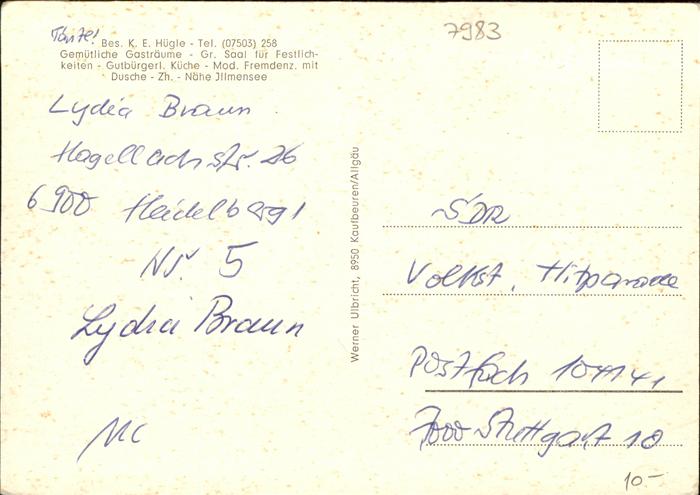 7983
Bes. K. E. Hügle - Tel. (07503) 258
Gemütliche Gasträume - Gr. Saal für Festlich-
keiten - Gutbürgerl. Küche - Mod. Fremdenz. mit
Dusche - Zh. - Nähe Jllmensee
Lydia Braun
Hagellachstr. 26
6900 Heidelberg 1
Nr. 5
Lydia Braun
MC
Werner Ulbricht, 8950 Kaufbeuren/Allgäu
SDR
Volkst. Hitparade
Postfach 104141
7000 Stuttgart 10
10.-